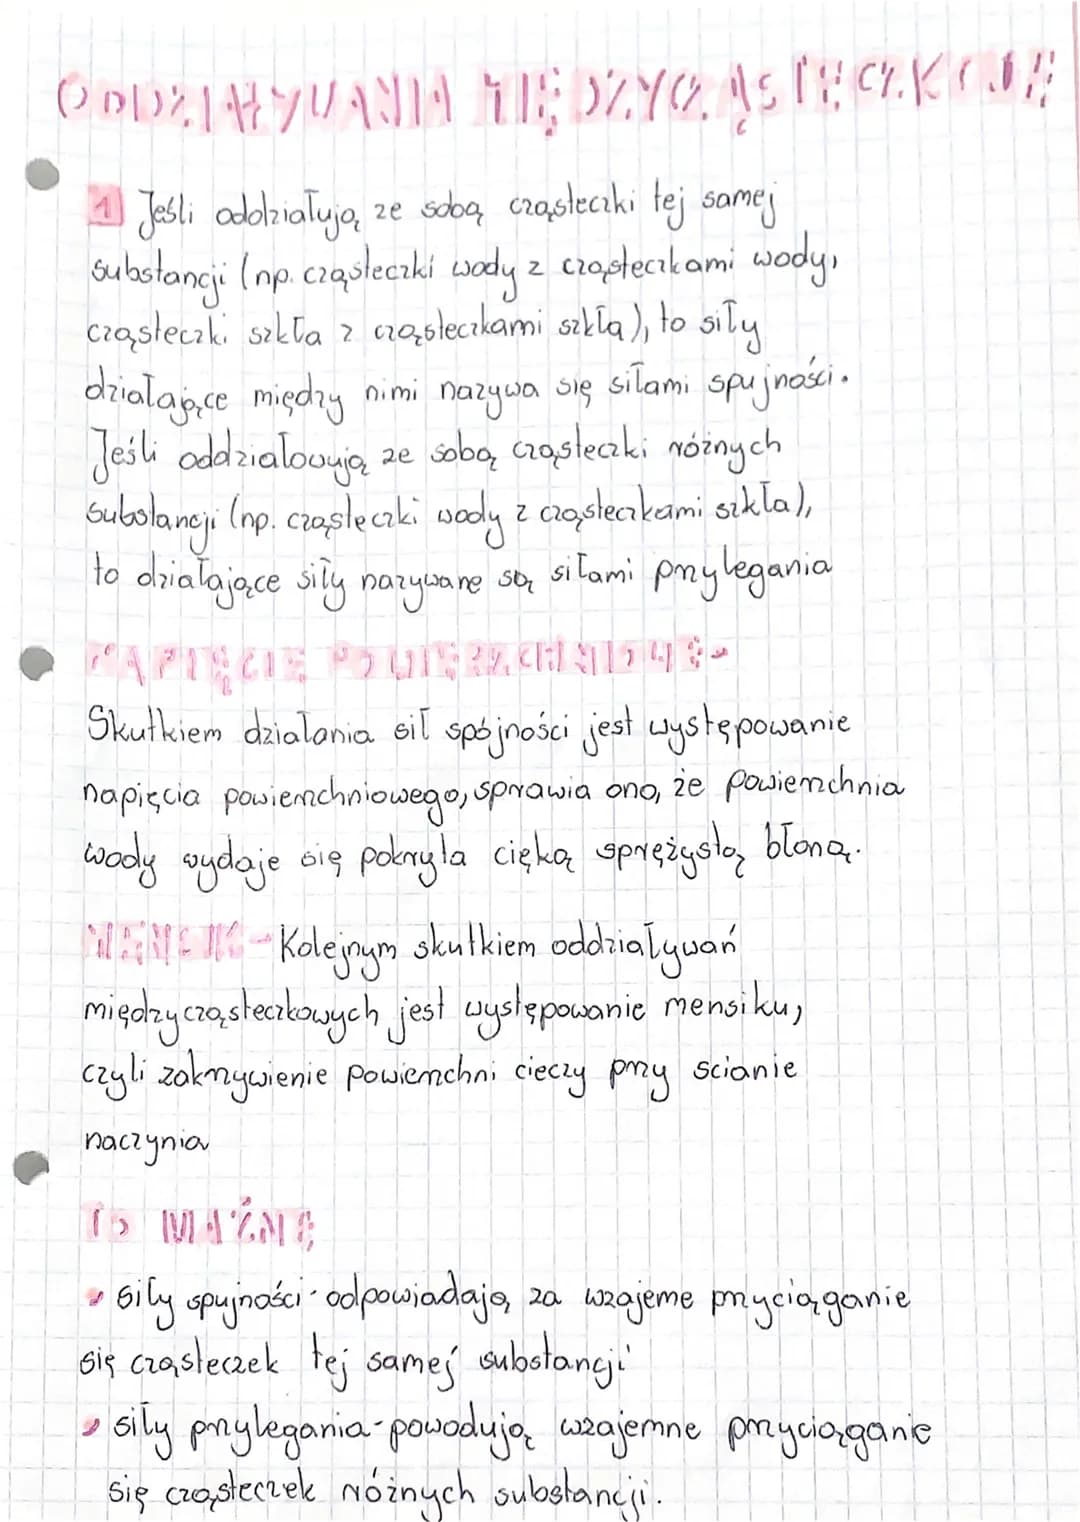 ODDZIAŁYWANIA MIĘDZYCZĄSTECZKOWE
1 Jeśli oddziałują ze sobą cząsteczki tej samej
substancji (np. cząsteczki wody z cząsteczkami wody,
cząsteczki szkła z cząsteczkami szkła), to siły
działające między nimi nazywa się siłami spujności.
Jeśli oddziałowują ze sobą cząsteczki różnych
substancji (np. cząsteczki wody z cząsteczkami szkła),
to działające siły nazywane są siłami przylegania
NAPIĘCIE POWIERZCHNIOWE-
Skutkiem działania sił spójności jest występowanie
napięcia powierzchniowego, sprawia ono, że powierzchnia
wody wydaje się pokryta cięką sprężystą błoną.
MENSIK - Kolejnym skutkiem oddziaływań
międzycząsteczkowych jest występowanie mensiku,
czyli zakrzywienie powierzchni cieczy przy scianie
naczynia
TO WAŻNE
• siły spujności - odpowiadają za wzajeme przyciąganie
się cząsteczek tej samej substancji
• siły przylegania - powodują wzajemne przyciąganie
się cząsteczek różnych substancji.